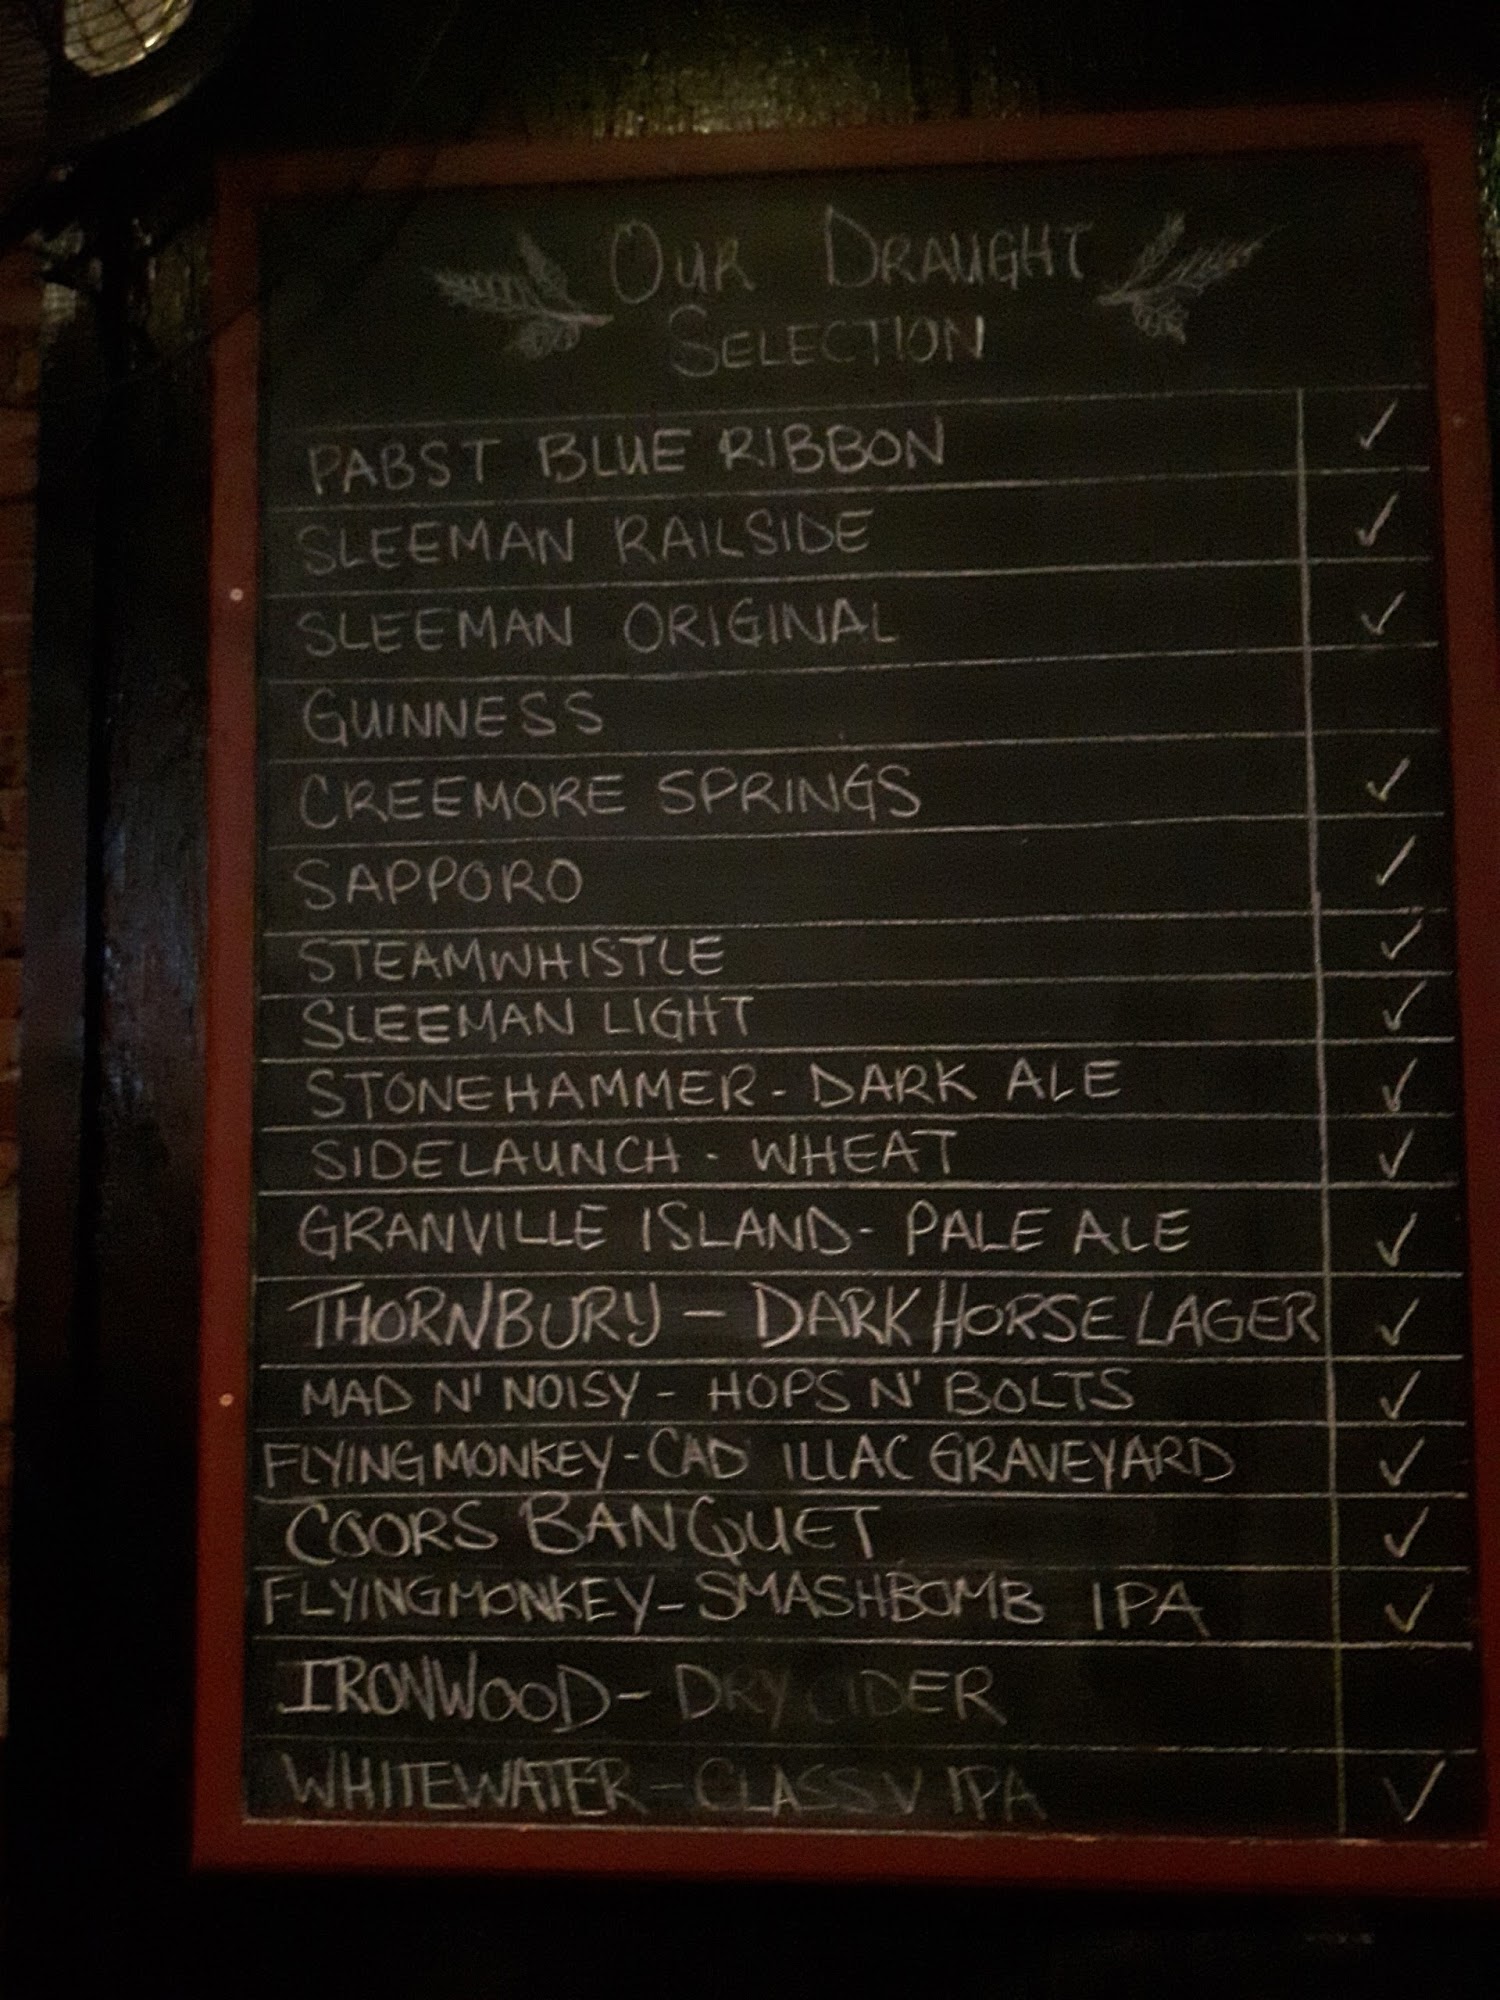 OUR DRAUGHT
SELECTION
PABST BLUE RIBBON ✓
SLEEMAN RAILSIDE ✓
SLEEMAN ORIGINAL ✓
GUINNESS
CREEMORE SPRINGS ✓
SAPPORO ✓
STEAMWHISTLE ✓
SLEEMAN LIGHT ✓
STONEHAMMER - DARK ALE ✓
SIDELAUNCH - WHEAT ✓
GRANVILLE ISLAND - PALE ALE ✓
THORNBURY - DARK HORSE LAGER ✓
MAD N' NOISY - HOPS N' BOLTS ✓
FLYING MONKEY - CAD ILLAC GRAVEYARD ✓
COORS BANQUET ✓
FLYING MONKEY - SMASHBOMB IPA ✓
IRONWOOD - DRY CIDER
WHITEWATER - CLASS V IPA ✓